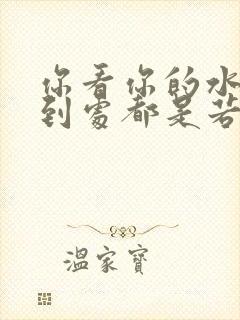 你看你的水
到處都是若
溫家寶